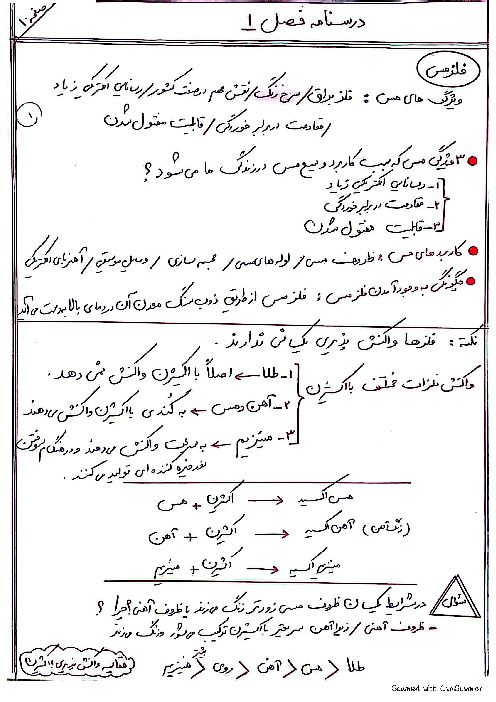 صفحه ۱۰
درسنامه فصل ۱
فلز مس
ویژگی های مس : فلز براق / سرخ رنگ / نقش مهم در صنعت کشور / رسانایی الکتریکی زیاد
/ مقاومت در برابر خوردگی / قابلیت مفتول شدن
۱
۳ ویژگی مس که سبب کاربرد وسیع مس در زندگی ما می شود ؟
۱- رسانایی الکتریکی زیاد
۲- مقاومت در برابر خوردگی
۳- قابلیت مفتول شدن
کاربردهای مس : ظروف مسی / لوله های مسی / مجسمه سازی / وسایل موسیقی / آهنربای الکتریکی
چگونگی به وجود آمدن فلز مس : فلز مس از طریق ذوب سنگ معدن آن در دمای بالا بدست می آید
نکته : فلزها واکنش پذیری یکسانی ندارند .
واکنش فلزات مختلف با اکسیژن
۱- طلا ← اصلاً با اکسیژن واکنش نمی دهد .
۲- آهن و مس ← به کندی با اکسیژن واکنش می دهند
۳- منیزیم ← به سرعت واکنش می دهد و در هنگام سوختن
نور خیره کننده ای تولید می کنند .
مس اکسید ⟵ اکسیژن + مس
(زنگ آهن) آهن اکسید ⟵ اکسیژن + آهن
منیزیم اکسید ⟵ اکسیژن + منیزیم
سوال
در شرایط یکسان ظروف مسی زودتر زنگ می زند یا ظروف آهنی؟ چرا ؟
- ظروف آهنی / زیرا آهن سریعتر با اکسیژن ترکیب می شود و زنگ می زند
طلا < مس < آهن < روی < منیزیم
مقایسه واکنش پذیری با اکسیژن
Scanned with CamScanner